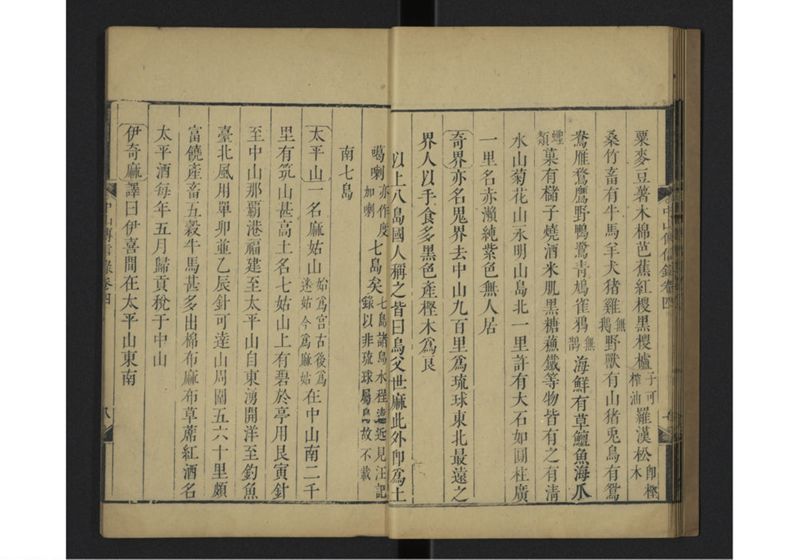 中山傳信錄卷四
粟麥豆薯木棉芭蕉紅椶黑椶櫨子可榨油羅漢松卽樫木
桑竹畜有牛馬羊犬豬雞無鵝野獸有山猪兎鳥有鴛
鴦雁鶩鷹野鴨鷺青鳩雀鴉無鵲海鮮有草鱣魚海爪
類菓有櫧子燒酒米肌黑糖蘓鐵等物皆有之有清
水山菊花山永明山島北一里許有大石如圓柱廣
一里名赤瀨純紫色無人居
奇界亦名鬼界去中山九百里爲琉球東北最遠之
界人以手食多黑色產樫木爲良
以上八島國人稱之皆曰烏父世麻此外卽爲土
噶喇亦作度加喇七島矣七島諸島水程遠近見汪記錄以非琉球屬島故不載
南七島
太平山一名麻姑山始爲宮古後爲迷姑今爲麻姑在中山南二千
里有筑山甚高土名七姑山上有碧於亭用艮寅針
至中山那覇港福建至太平山自東湧開洋至釣魚
臺北風用單卯並乙辰針可達山周圍五六十里頗
富饒產畜五穀牛馬甚多出棉布麻布草蓆紅酒名
太平酒每年五月歸貢稅于中山
伊奇麻譯曰伊喜間在太平山東南
中山傳信錄卷四
八